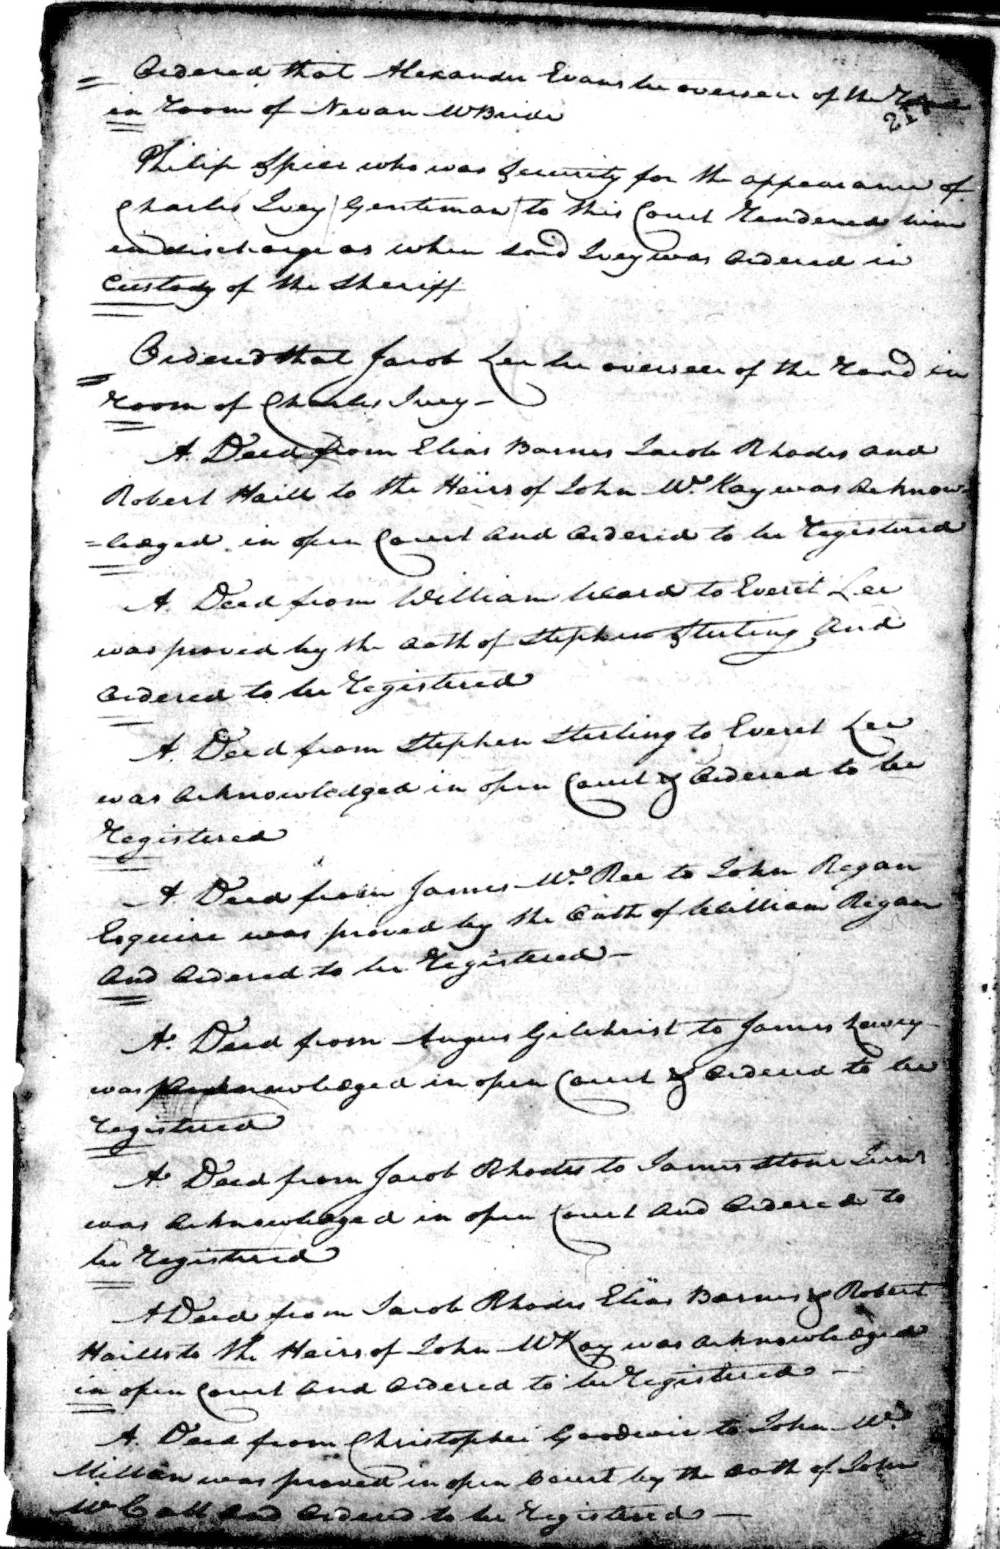 Ordered that Alexander Evans be overseer of the Road
in room of Nevan McBride
Philip Spier who was Security for the appearance of
Charles Ivey (Gentiman) to this Court Rendered him
in discharge as when said Ivey was ordered in
Custody of the Sheriff
Ordered that Jacob Lee be overseer of the road in
room of Charles Ivey -
A Deed from Elias Barnes Jacob Rhodes and
Robert Haills to the Heirs of John Mc Kay was acknow-
=ledged in open Court and ordered to be registered
A Deed from William Ward to Everet Lee
was proved by the oath of Stephen Sterling And
ordered to be registered
A Deed from Stephen Sterling to Everet Lee
was acknowledged in open Court & ordered to be
registered
A Deed from James Mc Ree to John Regan
Esquire was proved by the Oath of William Regan
and ordered to be registered -
A Deed from Angus Gilchrist to James Lowry
was acknowledged in open Court & ordered to be
registered
A Deed from Jacob Rhodes to James Stone
was acknowledged in open Court and ordered to
be registered
A Deed from Jacob Rhodes Elias Barnes & Robert
Haills to the Heirs of John McKay was acknowledged
in open Court and ordered to be registered -
A Deed from Christopher Goodwin to John Mc
Millan was proved in open Court by the oath of John
Mc Call and ordered to be registered -